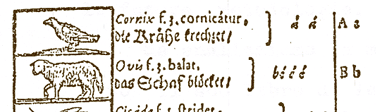 Cornix f. 3. cornicátur,
die Krähe krechzet/
á á
A a
Ovis f. 3. balat,
das Schaf blöcket/
bé é é
B b